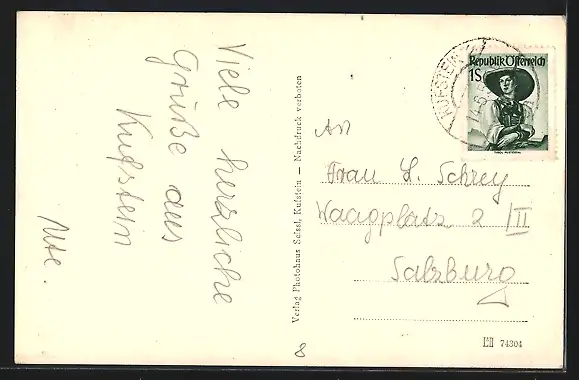 Viele herzliche
Grüße aus
Kufstein
Ute.
Verlag Photohaus Seissl, Kufstein — Nachdruck verboten
KUFSTEIN
Republik Österreich
1S
An
Frau L. Schrey
Waagplatz 2/II
Salzburg
74304
8